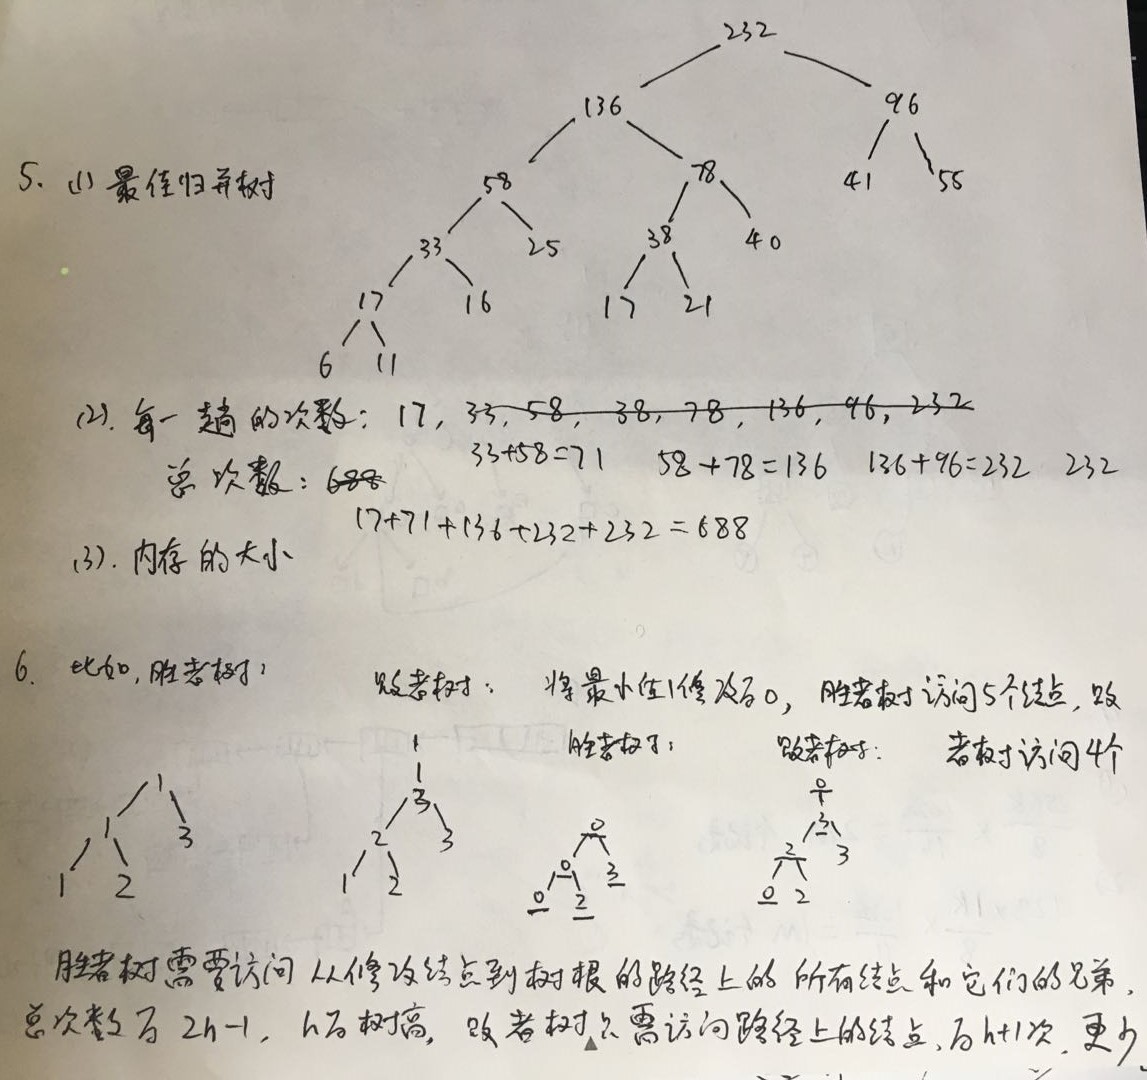 232
136 96
5. (1) 最佳归并树 58 78 41 55
33 25 38 40
17 16 17 21
6 11
(2). 每一趟的次数: 17, 33, 58, 38, 78, 136, 96, 232
33+58=71 58+78=136 136+96=232 232
总次数: 688
17+71+136+232+232=688
(3). 内存的大小
6. 比如, 胜者树: 败者树: 将最小值1修改为0, 胜者树访问5个结点, 败
胜者树: 败者树: 者树访问4个
1
1 1 3 0
1 3 2 3 0 3
1 2 1 2 0 3 2 3
0 2 0 2
胜者树需要访问从修改结点到树根的路径上的所有结点和它们的兄弟,
总次数为 2h-1, h为树高, 败者树只需访问路径上的结点, 为h+1次, 更少